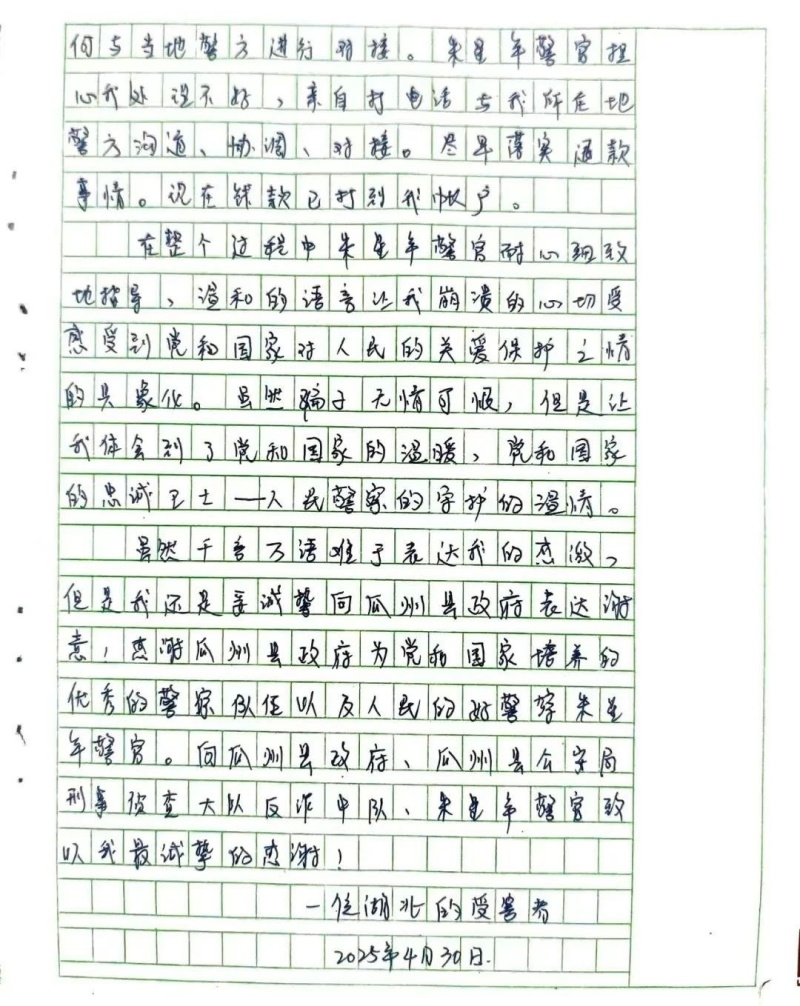 何与当地警方进行对接。朱星年警官担
心我处理不好，亲自打电话与我所在地
警方沟通、协调、对接。尽早落实退款
事情。现在钱款已打到我账户。
在整个过程中朱星年警官耐心细致
地指导，温和的语音让我崩溃的心切受
感受到党和国家对人民的关爱保护之情
的具象化。虽然骗子无情可恨，但是让
我体会到了党和国家的温暖，党和国家
的忠诚卫士——人民警察的守护的温情。
虽然千言万语难于表达我的感激，
但是我还是要诚挚向瓜州县政府表达谢
意！感谢瓜州县政府为党和国家培养的
优秀的警察队伍以及人民的好警察朱星
年警官。向瓜州县政府、瓜州县公安局
刑事侦查大队反诈中队、朱星年警官致
以我最诚挚的感谢！
一位湖北的受害者
2025年4月30日.